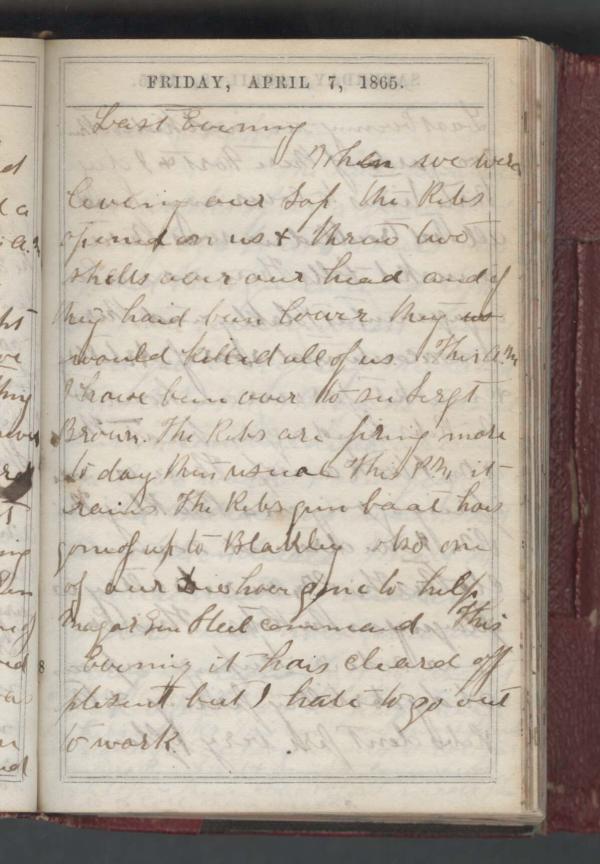 FRIDAY, APRIL 7, 1865.
Last Evening
When we were
leveing our Sap the Rebs
opened on us & threw two
shells over our head and if
they haid bun lower they
would killed all of us. This A.M.
I have bun over to see Sergt
Brown. The Rebs are firing more
to day then usual This P.M. it
rains. The Rebs gun boat hais
gone up to Blakley also one
of our gone to help
Magor Gen Steel command This
Evening it hais cleard off
plesent but I hate to go out
to work.
8